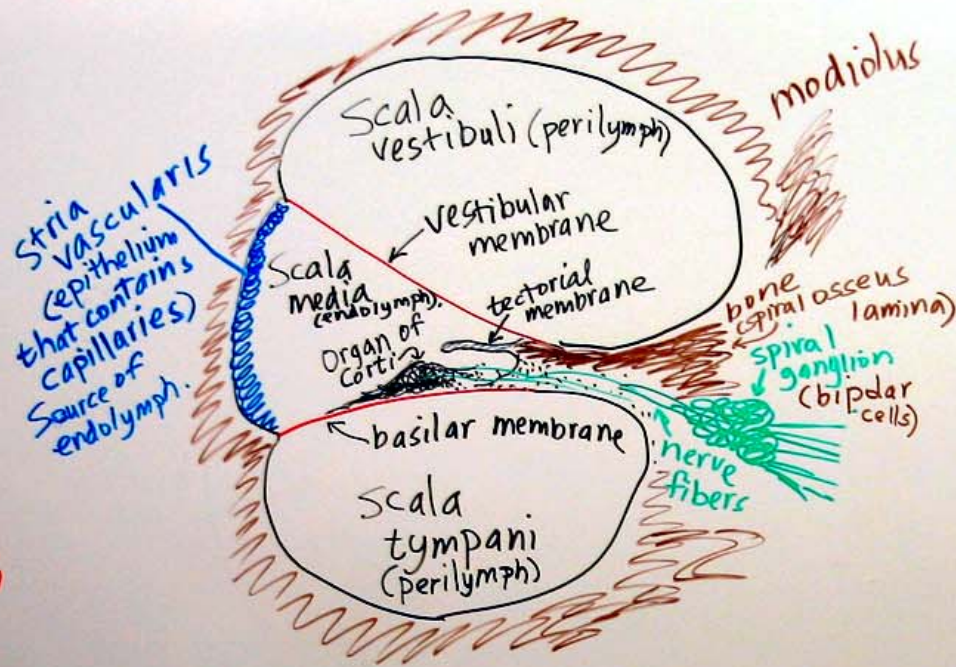 modiolus
Scala
vestibuli (perilymph)
stria
vascularis
(epithelium
that contains
capillaries)
Source of
endolymph.
vestibular
membrane
Scala
media
(endolymph).
tectorial
membrane
Organ of
Corti
bone
(spiral osseus
lamina)
spiral
ganglion
(bipolar
cells)
basilar membrane
nerve
fibers
Scala
tympani
(perilymph)